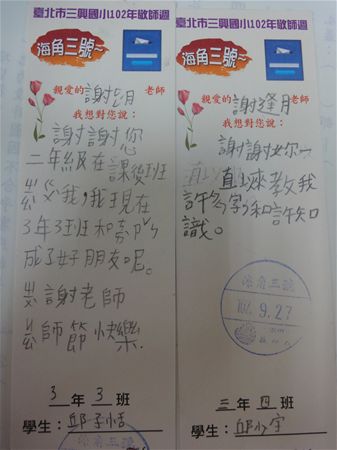 臺北市三興國小102年敬師週
海角三號~
親愛的謝 月老師
我想對您說：
謝謝您
二年級在課後班
ㄐㄧㄠ我，我現在
3年3班和
成了好朋友呢。
謝老師
師節快樂
3年3班
學生：邱子恬
海角三號
臺北市三興國小102年敬師週
海角三號~
親愛的謝逢月老師
我想對您說：
謝謝妳一
直以來教我
許多字和許多知
識。
海角三號
102.9.27
三年四班
學生：邱